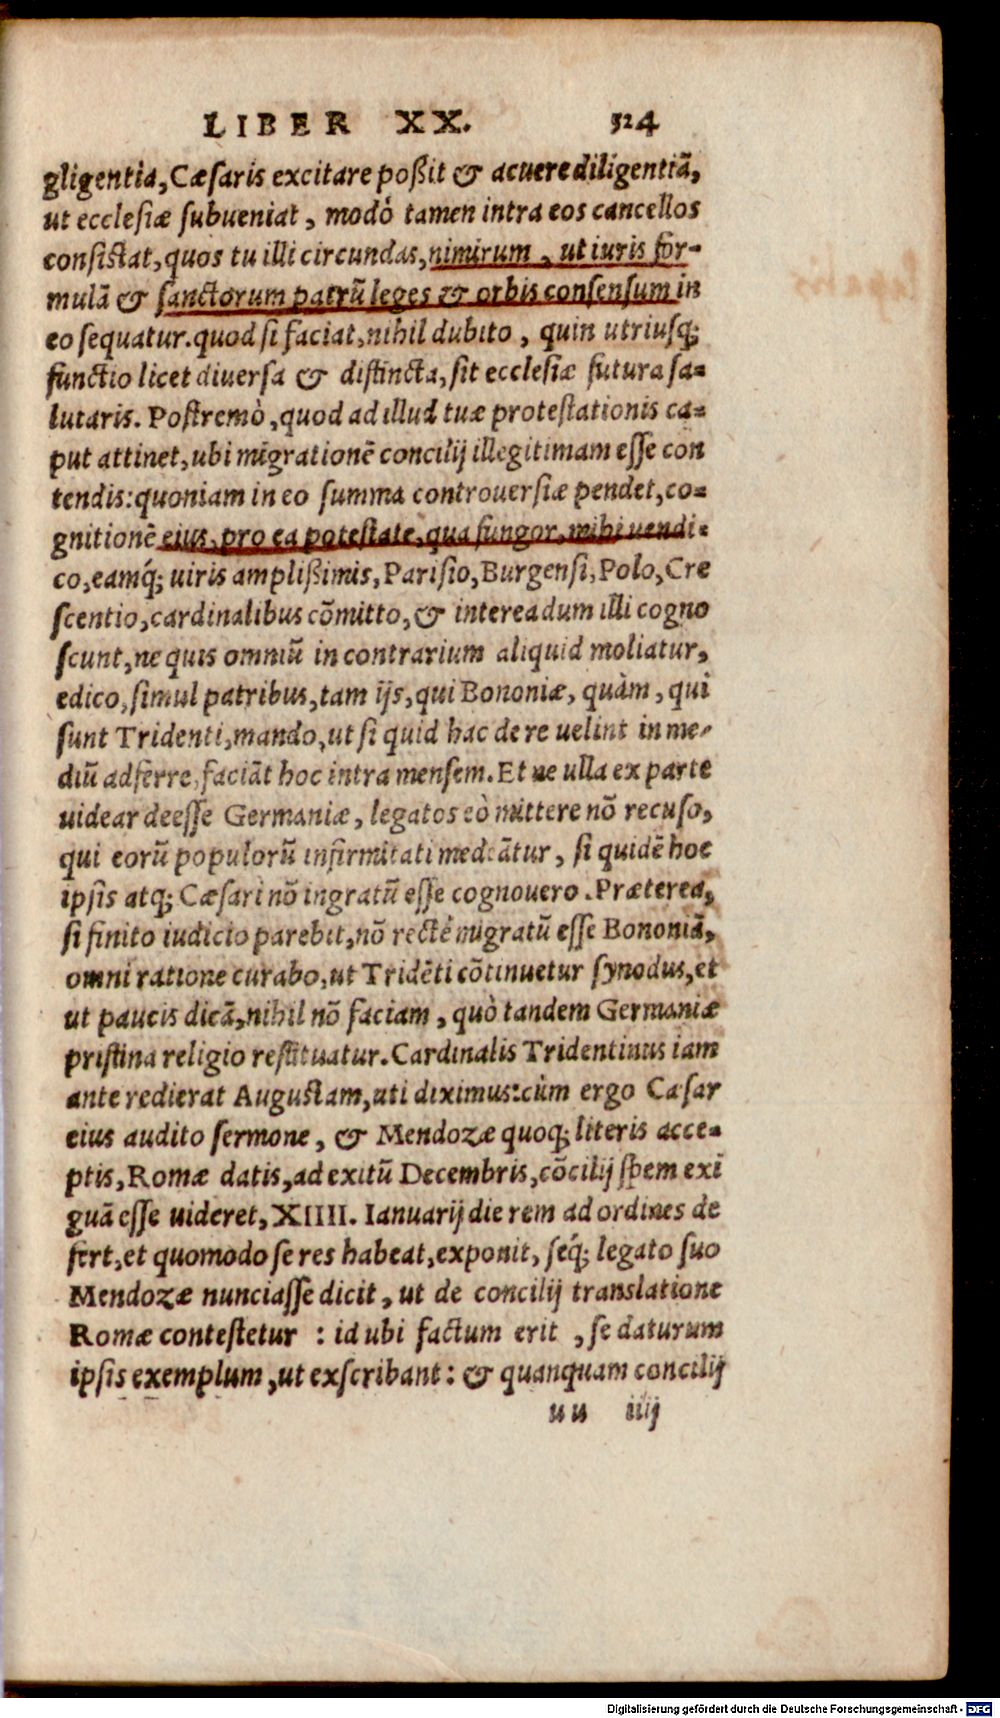 LIBER XX. 524
gligentia, Cæsaris excitare poßit & acuere diligentiã,
ut ecclesiæ subueniat, modò tamen intra eos cancellos
consistat, quos tu illi circundas, nimirum, ut iuris for-
mulã & sanctorum patrũ leges & orbis consensum in
eo sequatur. quod si faciat, nihil dubito, quin utriusq;
functio licet diuersa & distincta, sit ecclesiæ futura sa-
lutaris. Postremò, quod ad illud tuæ protestationis ca-
put attinet, ubi migrationẽ concilij illegitimam esse con
tendis: quoniam in eo summa controuersiæ pendet, co-
gnitionẽ eius, pro ea potestate, qua fungor, mihi uendi-
co, eamq́; uiris amplißimis, Parisio, Burgensi, Polo, Cre
scentio, cardinalibus cõmitto, & interea dum illi cogno
scunt, ne quis omniũ in contrarium aliquid moliatur,
edico, simul patribus, tam ijs, qui Bononiæ, quàm, qui
sunt Tridenti, mando, ut si quid hac de re uelint in me-
diũ adferre, faciãt hoc intra mensem. Et ne ulla ex parte
uidear deesse Germaniæ, legatos eò mittere nõ recuso,
qui eorũ populorũ infirmitati medeãtur, si quidẽ hoc
ipsis atq; Cæsari nõ ingratũ esse cognouero. Præterea,
si finito iudicio parebit, nõ rectè migratũ esse Bononiã,
omni ratione curabo, ut Tridẽti cõtinuetur synodus, et
ut paucis dicã, nihil nõ faciam, quò tandem Germaniæ
pristina religio restituatur. Cardinalis Tridentinus iam
ante redierat Augustam, uti diximus: cùm ergo Cæsar
eius audito sermone, & Mendozæ quoq; literis acce-
ptis, Romæ datis, ad exitũ Decembris, cõcilij spem exi
guã esse uideret, XIIII. Ianuarij die rem ad ordines de
fert, et quomodo se res habeat, exponit, seq́; legato suo
Mendozæ nunciasse dicit, ut de concilij translatione
Romæ contestetur : id ubi factum erit , se daturum
ipsis exemplum, ut exscribant: & quanquam concilij
uu iiij
Digitalisierung gefördert durch die Deutsche Forschungsgemeinschaft - DFG